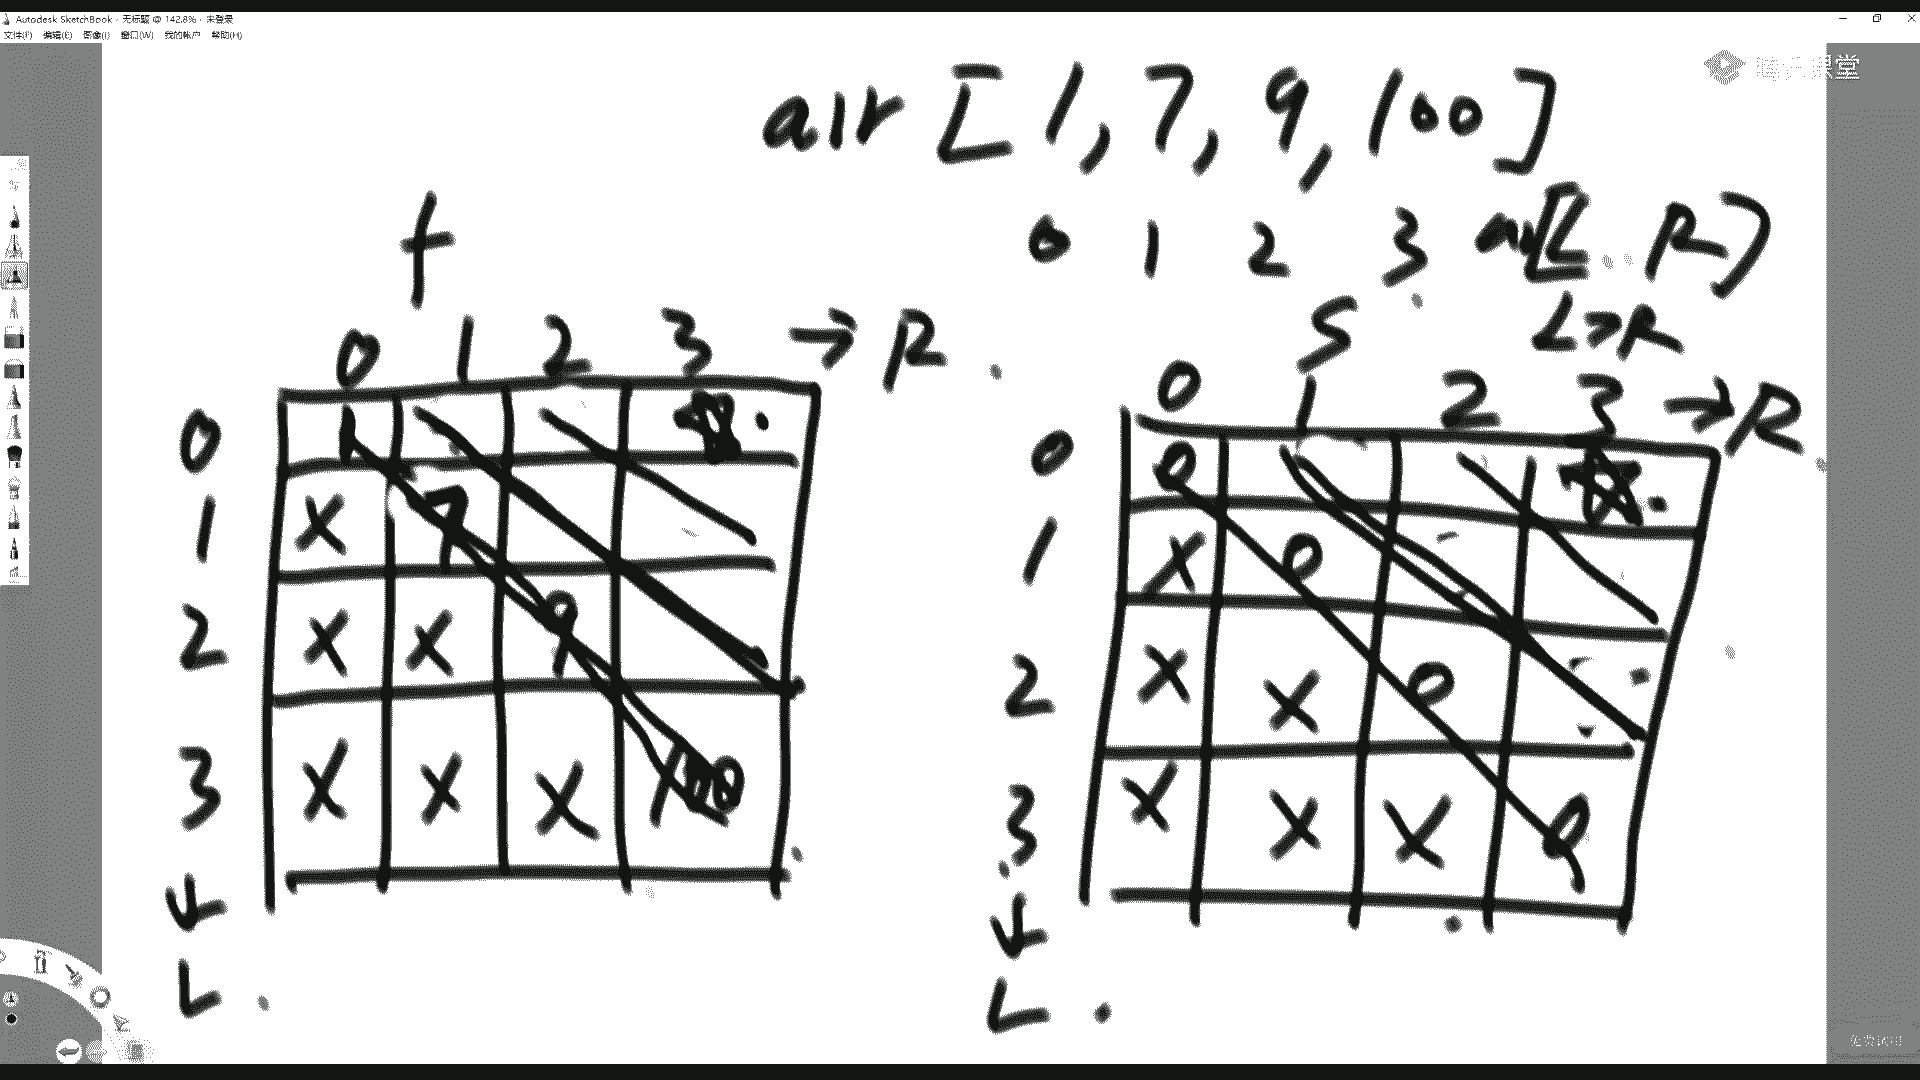 Autodesk SketchBook - 无标题 @ 142.8% - 未登录
文件(F) 编辑(E) 图像(I) 窗口(W) 我的帐户 帮助(H)
腾讯课堂
arr [1, 7, 9, 100]
0 1 2 3 arr[L..R]
L>R
f
0 1 2 3 → R
0 1
1 x 7
2 x x 9
3 x x x 100
↓
L
S
0 1 2 3 → R
0 0
1 x 0
2 x x 0
3 x x x 0
↓
L
免费试用